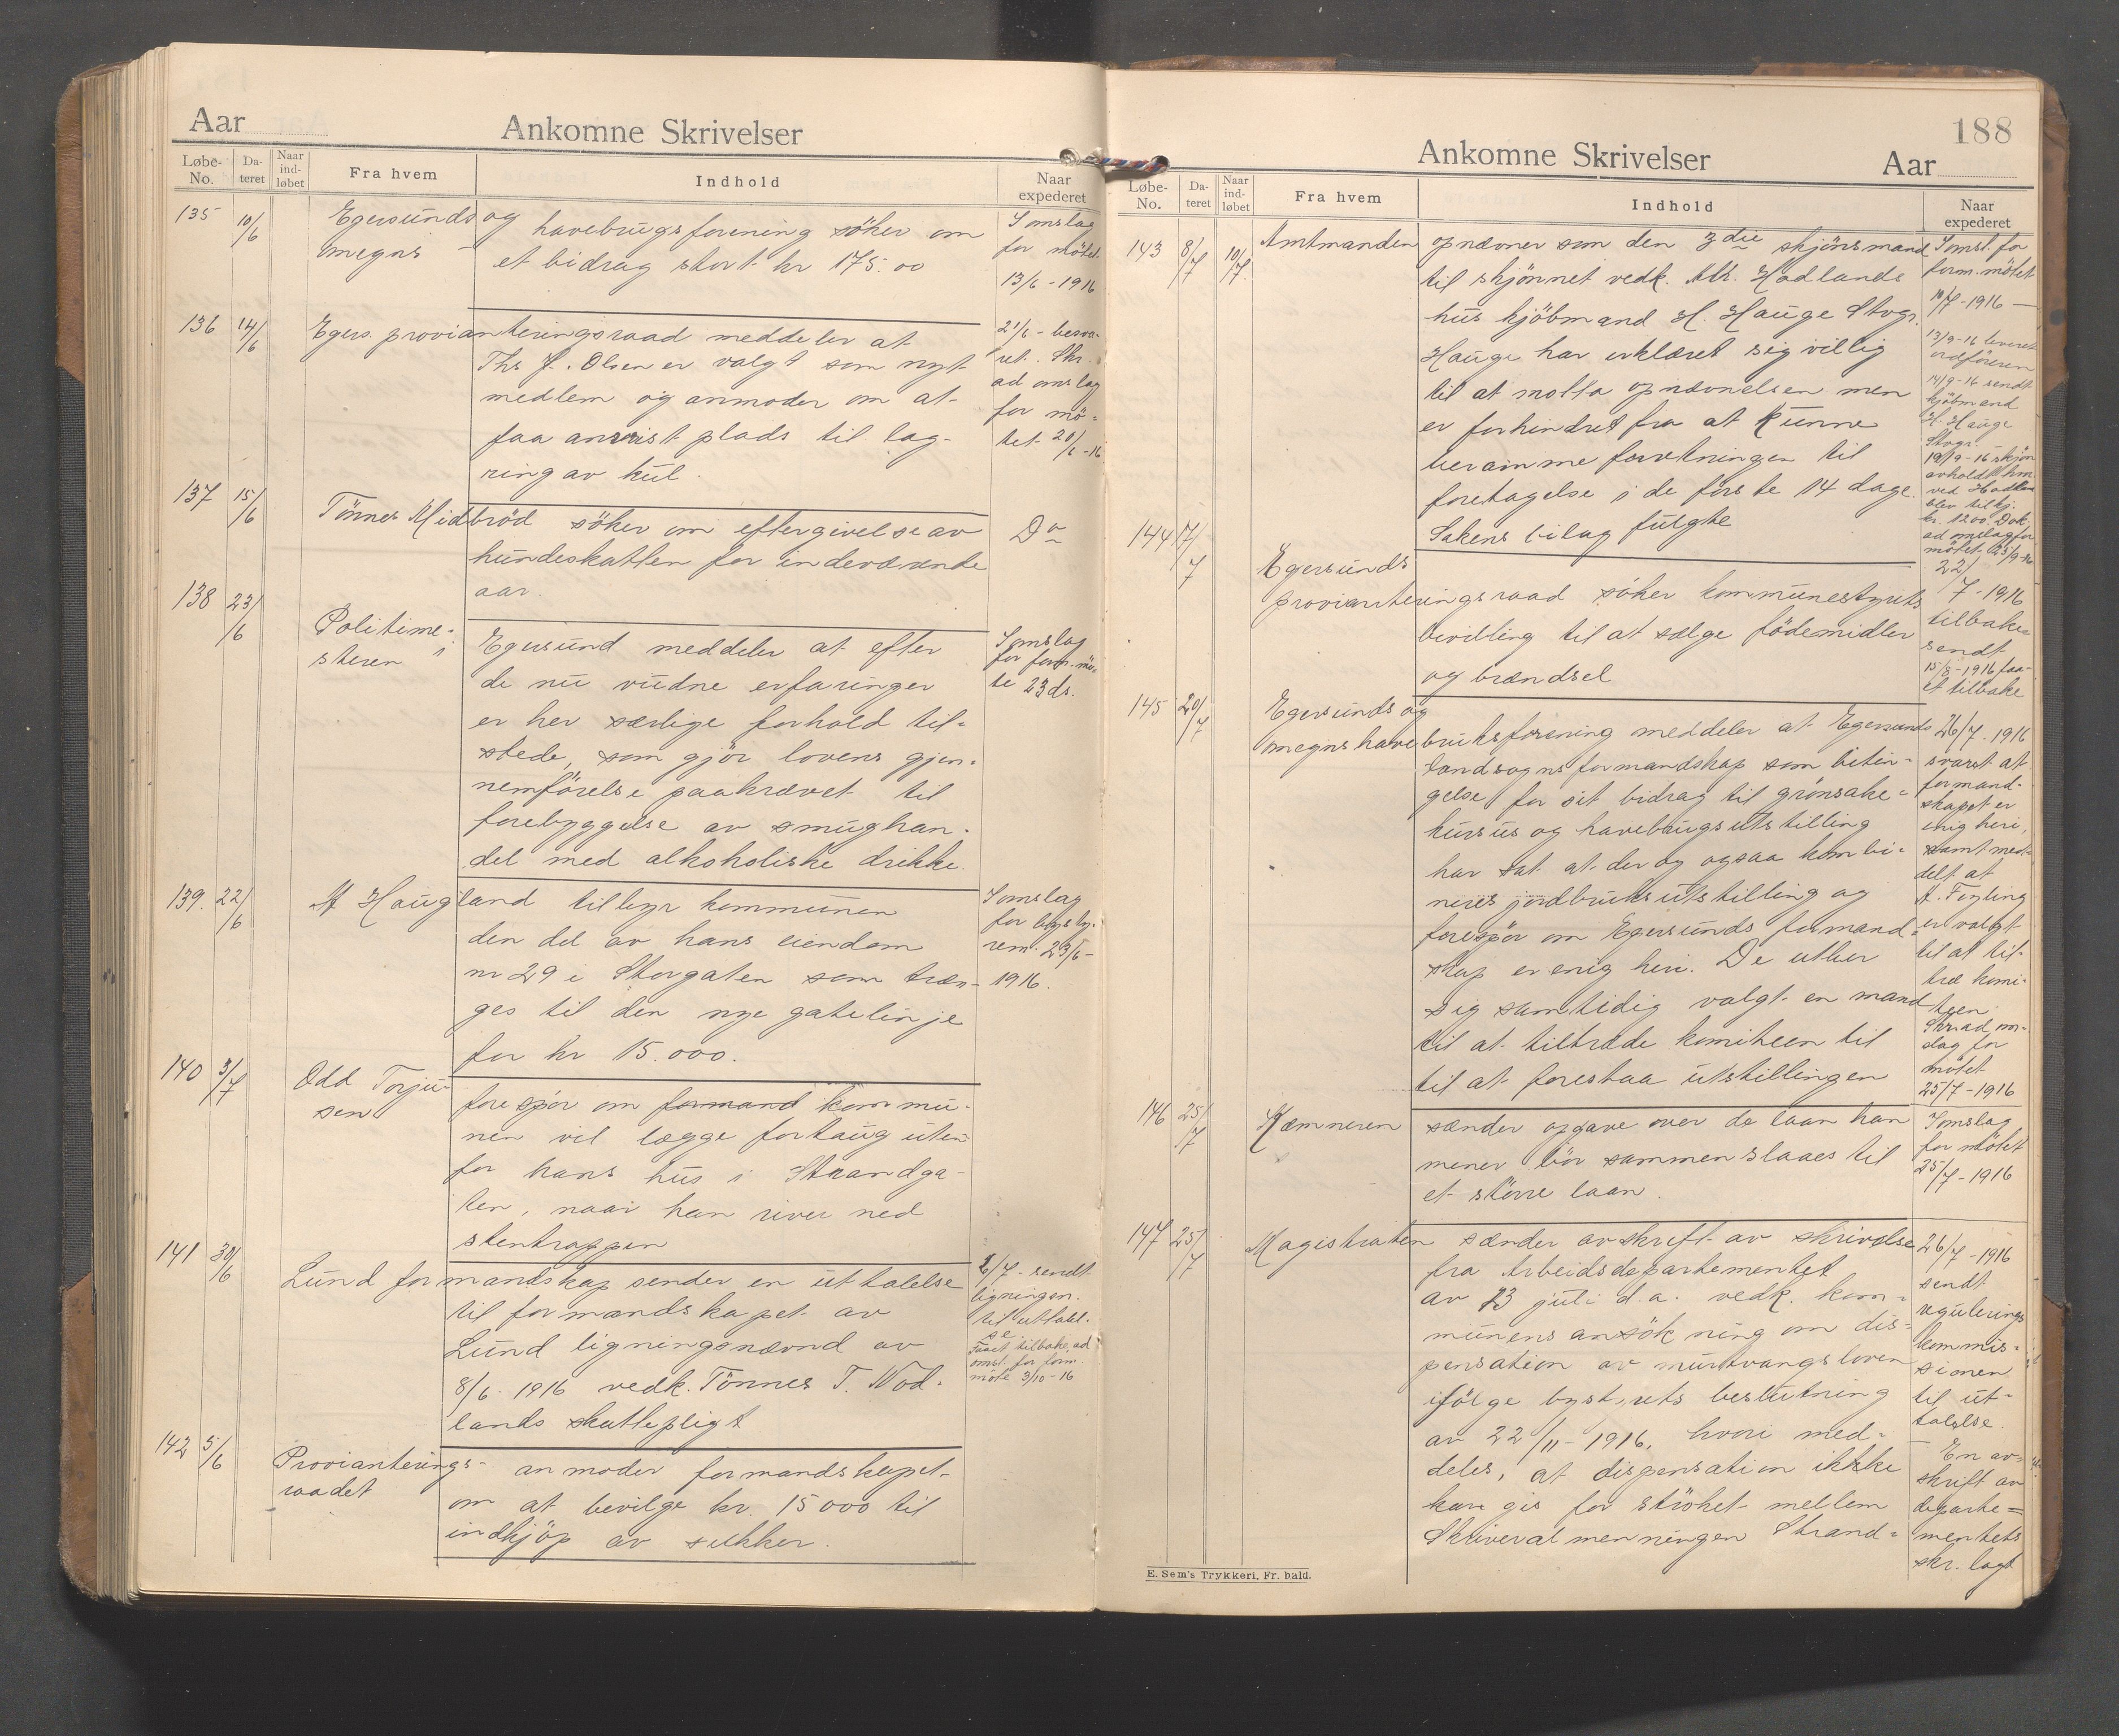 Aar
Ankomne Skrivelser
Løbe-No. Dateret Naar indløbet Fra hvem Indhold Naar expederet
135 10/6 Egersunds og
omegns havebrugsforening söker om
et bidrag stort kr 175.00
I omslag
for mötet
13/6-1916
136 14/6 Egers. provianteringsraad meddeler at
Ths J. Olsen er valgt som nyt
medlem og anmoder om at
faa anvist plads til lag-
ring av kul.
21/6 - besva-
ret. Skr.
ad omslag
for mö-
tet 20/6-16
137 15/6 Tönnes Midbröd söker om eftergivelse av
hundeskatten for indeværende
aar.
Do
138 23/6 Politime-
steren i Egersund meddeler at efter
de nu vundne erfaringer
er her særlige forhold til-
stede, som gjör lovens gjen-
nemförelse paakrævet til
forebyggelse av smughan-
del med alkoholiske drikke.
I omslag
for form. mö-
te 23 ds.
139. 22/6 M Haugland tilbyr kommunen
den del av hans eiendom
nr 29 i Storgaten som træn-
ges til den nye gatelinje
for kr 15.000.
I omslag
for
23/6-
1916.
140 3/7 Odd Torju-
sen forespör om formand kommu-
nen vil lægge fortaug uten-
for hans hus i Strandga-
ten, naar han river ned
stentrappen
141 30/6 Lund formandskap sender en uttalelse
til formandskapet av
Lund ligningsnævnd av
8/6 1916 vedk. Tönnes T. Mod-
lands skattepligt
/7 - sendt
ligningsn.
til uttalel-
se
Faaet tilbake, ad
omsl. for form.
möte 3/10-16
142 5/6 Provianterings-
raadet anmoder formandskapet
om at bevilge kr. 15000 til
indkjöp av sukker.
188
Ankomne Skrivelser
Aar
Løbe-No. Dateret Naar indløbet Fra hvem Indhold Naar expederet
143 8/7 10/7 Amtmanden opnævner som den 3die skjönsmand
til skjönnet vedk. Hadlands
hus kjöbmand H. Hauge Stvgr.
Hauge har erklæret sig villig
til at motta opnævnelsen men
er forhindret fra at kunne
beramme forretningen til
foretagelse i de förste 14 dage.
Sakens bilag fulgte
I omsl. for
form. mötet
10/7-1916 —
13/9-16 leveret
ordföreren
14/9-16 sendt
kjöbmand
H. Hauge
Stvgr.
19/9-16 skjön
avholdt
ved
blev tilkj.
kr. 1200. Dok.
ad omslag for
mötet 25/9-16
144 17/7 Egersunds
provianteringsraad söker kommunestyrets
bevilling til at sælge födemidler
og brændsel
22/
7-1916
tilbake-
sendt
15/8-1916 faa-
et tilbake
145 20/7 Egersunds og
omegns havebruksforening meddeler at Egersunds
landsogns formandskap som betin-
gelse for sit bidrag til grönsake-
kursus og havebrugsutstilling
har sat at der og ogsaa kombi-
neres jordbruksutstilling og
forespör om Egersunds formand-
skap er enig heri. De utber
sig samtidig valgt en mand
til at tiltræde komiteen til
til at forestaa utstillingen
26/7.1916
svaret at
formand-
skapet er
enig heri,
samt med-
delt at
A. Feyling
er valgt
til at til-
træ komi-
teen
Skr. ad om-
slag for
mötet
25/7-1916
146 25/7 Kæmneren sænder opgave over de laan han
mener bör sammenslaaes til
et större laan.
I omslag
for mötet
25/7-1916
147 25/7 Magistraten sænder avskrift av skrivelse
fra Arbeidsdepartementet
av 13 juli d.a. vedk. kom-
munens ansökning om dis-
pensation av murtvangsloven
ifölge bystyrets beslutning
av 22/11-1916, hvori med-
deles, at dispensation ikke
kan gis for ströket mellem
Skriveralmenningen Strand-
26/7-1916
sendt
regulerings
kommis-
sionen
til ut-
talelse.
En av-
skrift av
departe-
mentets
skr. lagt
E. Sem's Trykkeri, Fr. hald.